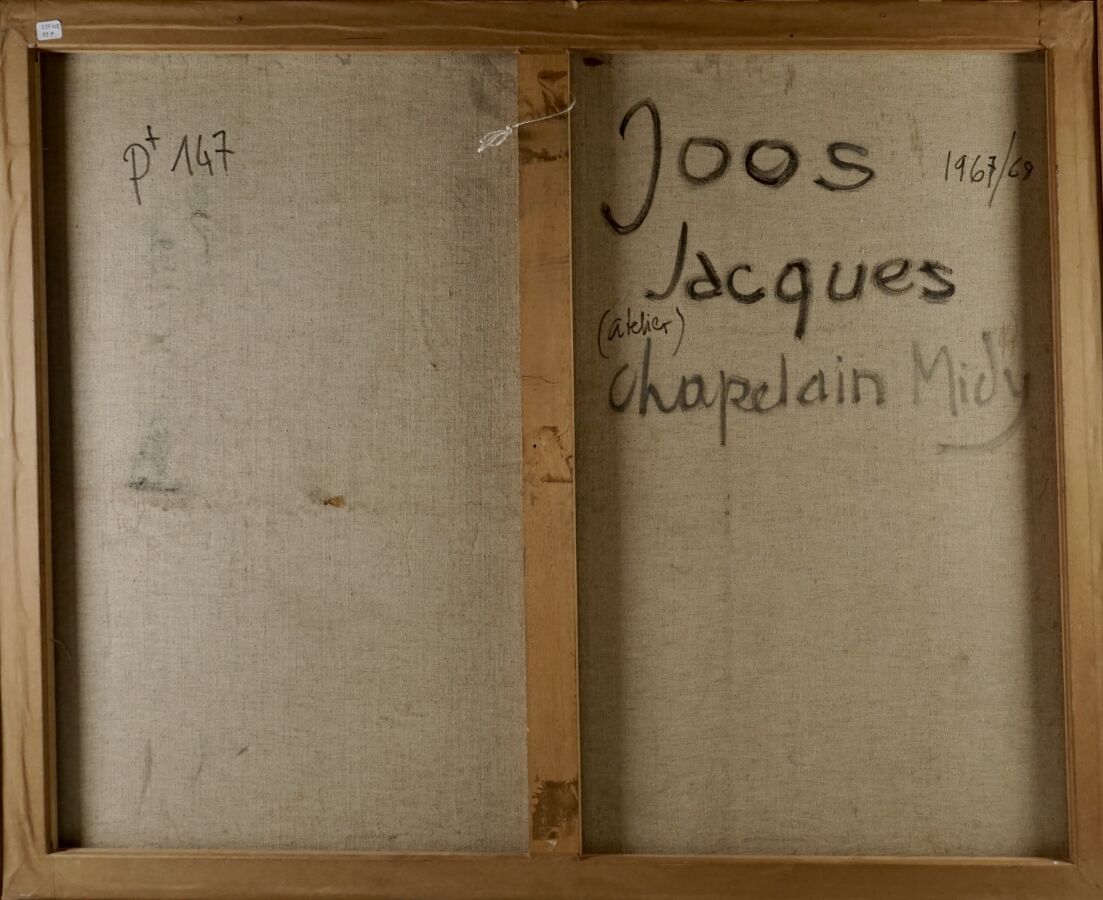 P+ 147
Joos 1967/68
Jacques
(atelier)
Chapelain Midy